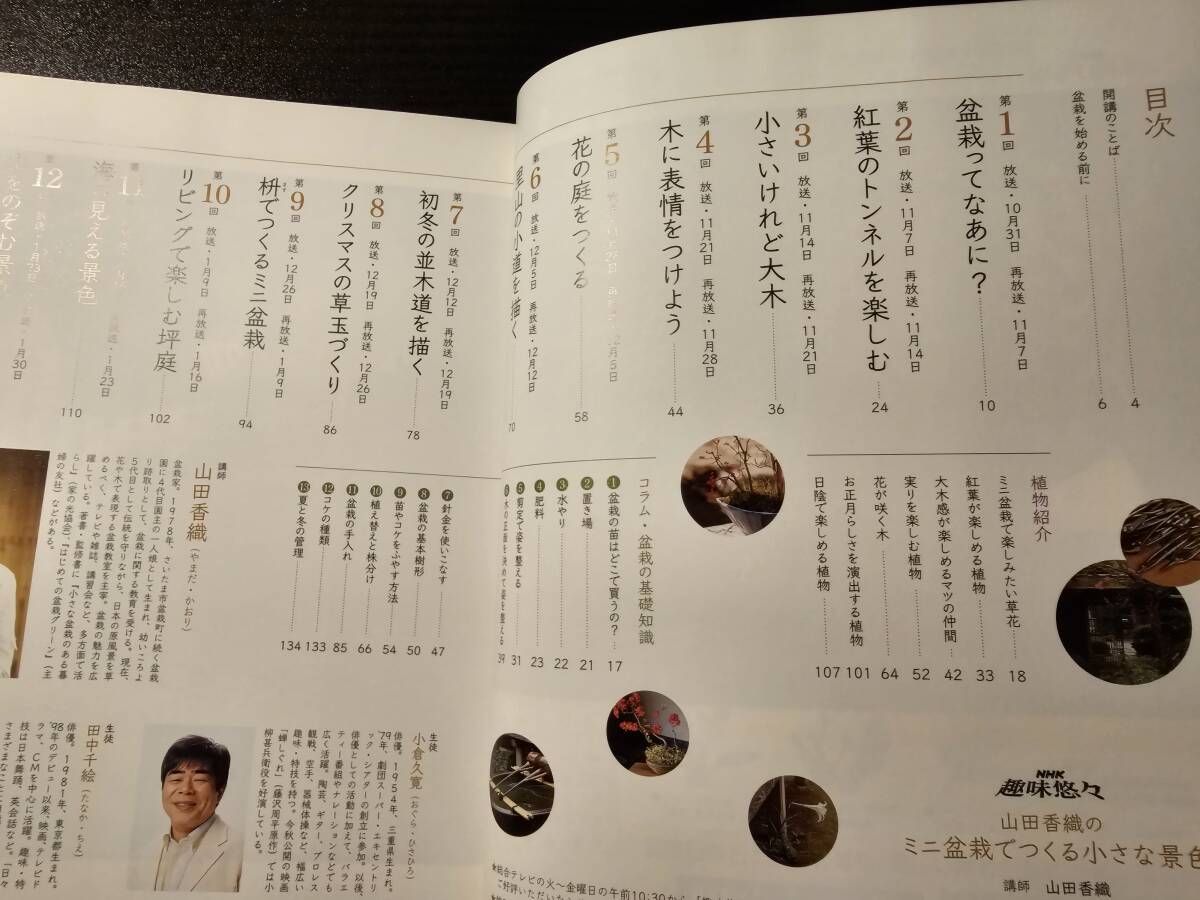 目次
開講のことば……4
盆栽を始める前に……6
第1回 放送・10月31日 再放送・11月7日
盆栽ってなあに?……10
第2回 放送・11月7日 再放送・11月14日
紅葉のトンネルを楽しむ……24
第3回 放送・11月14日 再放送・11月21日
小さいけれど大木……36
第4回 放送・11月21日 再放送・11月28日
木に表情をつけよう……44
第5回
花の庭をつくる……58
第6回 放送・12月5日 再放送・12月12日
里山の小道を描く
70
第7回 放送・12月12日 再放送・12月19日
初冬の並木道を描く……78
第8回 放送・12月19日 再放送・12月26日
クリスマスの草玉づくり……86
第9回 放送・12月26日 再放送・1月9日
枡でつくるミニ盆栽……94
ます
第10回 放送・1月9日 再放送・1月16日
リビングで楽しむ坪庭……102
11
見える景色……110
12
をのぞむ景
植物紹介
ミニ盆栽で楽しみたい草花……18
紅葉が楽しめる植物……33
大木感が楽しめるマツの仲間……42
実りを楽しむ植物……52
花が咲く木……64
お正月らしさを演出する植物……101
日陰で楽しめる植物……107
コラム・盆栽の基礎知識
①盆栽の苗はどこで買うの?……17
②置き場……21
③水やり……22
④肥料……23
⑤剪定で姿を整える……31
39
⑦針金を使いこなす……47
⑧盆栽の基本樹形……50
⑨苗やコケをふやす方法……54
⑩植え替えと株分け……66
⑪盆栽の手入れ……85
⑫コケの種類……133
⑬夏と冬の管理……134
講師
山田香織(やまだ・かおり)
盆栽家。1978年、さいたま市盆栽町に続く盆栽
園に4代目園主の一人娘として生まれ、幼いころよ
り跡取りとして、盆栽に関する教育を受ける。現在、
5代目として伝統を守りながら、日本の原風景を草
花や木で表現する盆栽教室を主宰。盆栽の魅力を広
めるべく、テレビや雑誌、講習会など、多方面で活
躍している。著書・監修書に『小さな盆栽のある暮
らし』(家の光協会)、『はじめての盆栽グリーン』(主
婦の友社)などがある。
生徒
小倉久寛(おぐら・ひさひろ)
俳優。1954年、三重県生まれ。
'79年、劇団スーパー・エキセントリ
ック・シアターの創立に参加。以後、
俳優としての活動に加えて、バラエ
ティー番組やナレーションなどでも
広く活躍。陶芸、ギター、プロレス
観戦、空手、器械体操など、幅広い
趣味・特技を持つ。今秋公開の映画
「蝉しぐれ」(藤沢周平原作)では小
柳甚兵衛役を好演している。
生徒
田中千絵(たなか・ちえ)
俳優。1981年、東京都生まれ。
'98年のデビュー以来、映画、テレビド
ラマ、CMを中心に活躍。趣味・特
技は日本舞踊、英会話など。「日々
さまざまなことに
NHK
趣味悠々
山田香織の
ミニ盆栽でつくる小さな景色
講師 山田香織
★総合テレビの火〜金曜日の午前10:30から